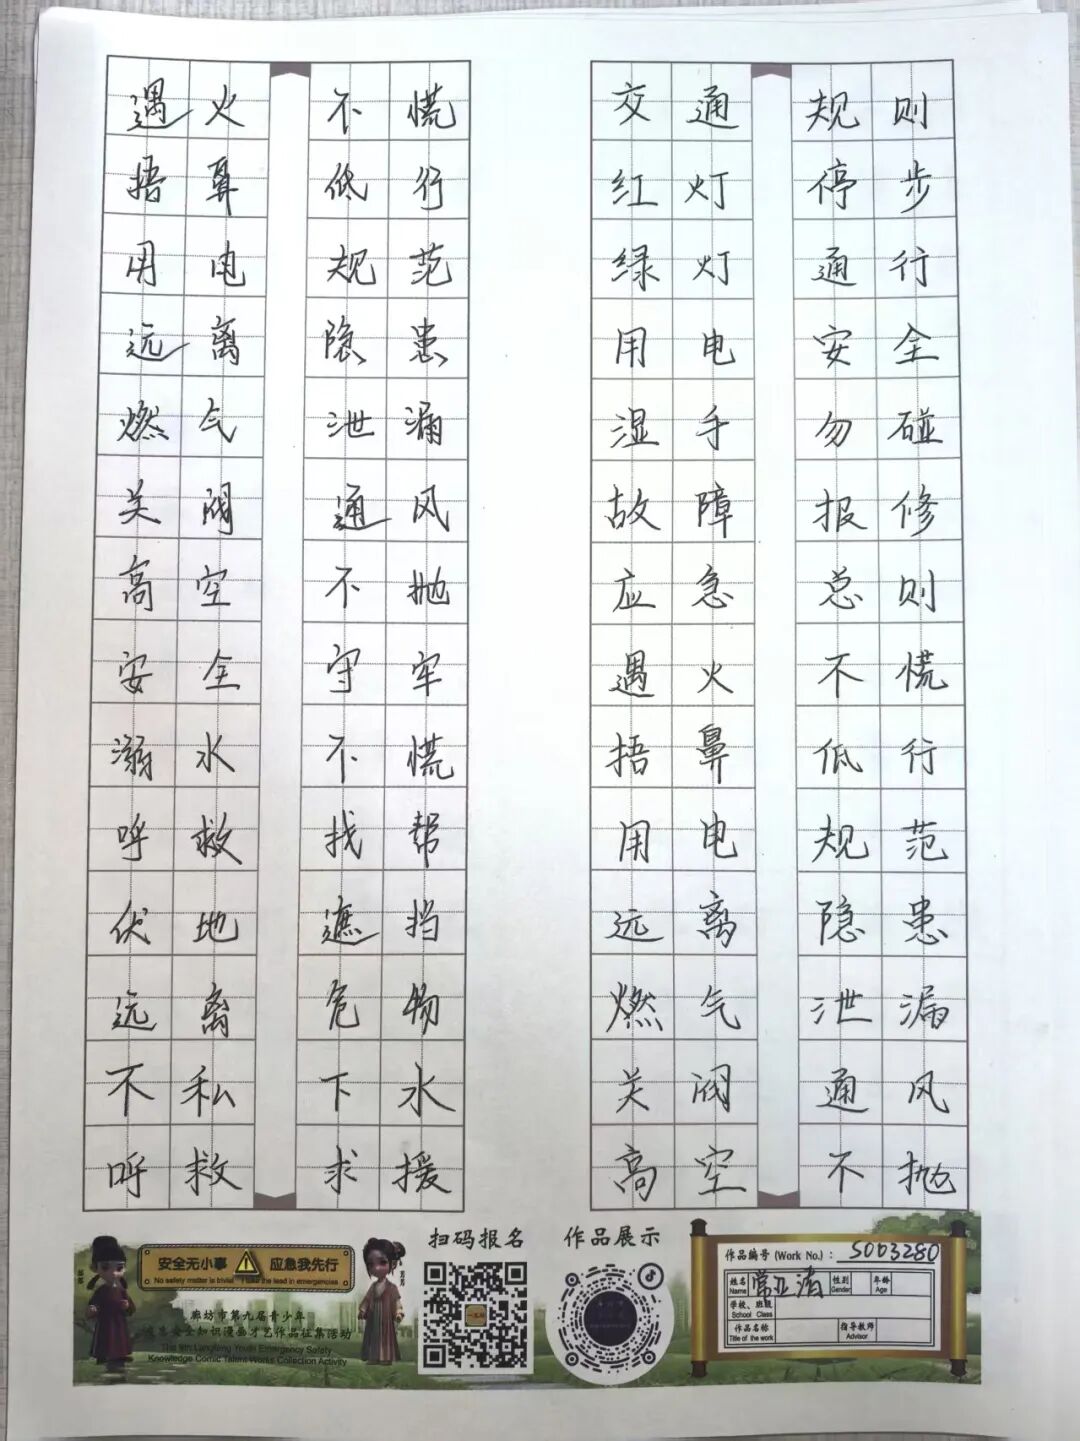 遇火 不慌
捂鼻 低行
用电 规范
远离 隐患
燃气 泄漏
关阀 通风
高空 不抛
安全 守牢
溺水 不慌
呼救 找帮
伏地 遮挡
远离 危物
不私 下水
呼救 求援
交通 规则
红灯 停步
绿灯 通行
用电 安全
湿手 勿碰
故障 报修
应急 总则
遇火 不慌
捂鼻 低行
用电 规范
远离 隐患
燃气 泄漏
关阀 通风
高空 不抛
安全无小事 应急我先行
No safety matter is trivial I take the lead in emergencies
廊坊市第九届青少年
应急安全知识漫画才艺作品征集活动
The 9th Langfang Youth Emergency Safety
Knowledge Comic Talent Works Collection Activity
扫码报名
作品展示
作品编号 (Work No.): S0D3280
姓名 Name 常亚清 性别 Gender 年龄 Age
学校、班级 School Class
作品名称 Title of the work 指导教师 Advisor